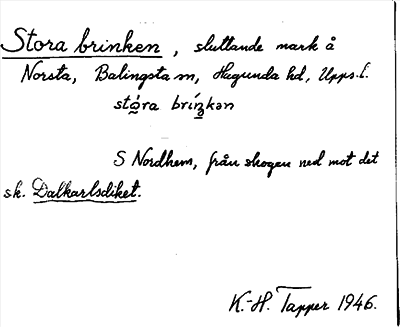 Stora brinken, sluttande mark å
Norsta, Balingsta sn, Hagunda hd, Upps. l.
stǻra briŋkən
S Nordhem, från skogen ned mot det
sk. Dalkarlsdiket.
K.-H. Tapper 1946.